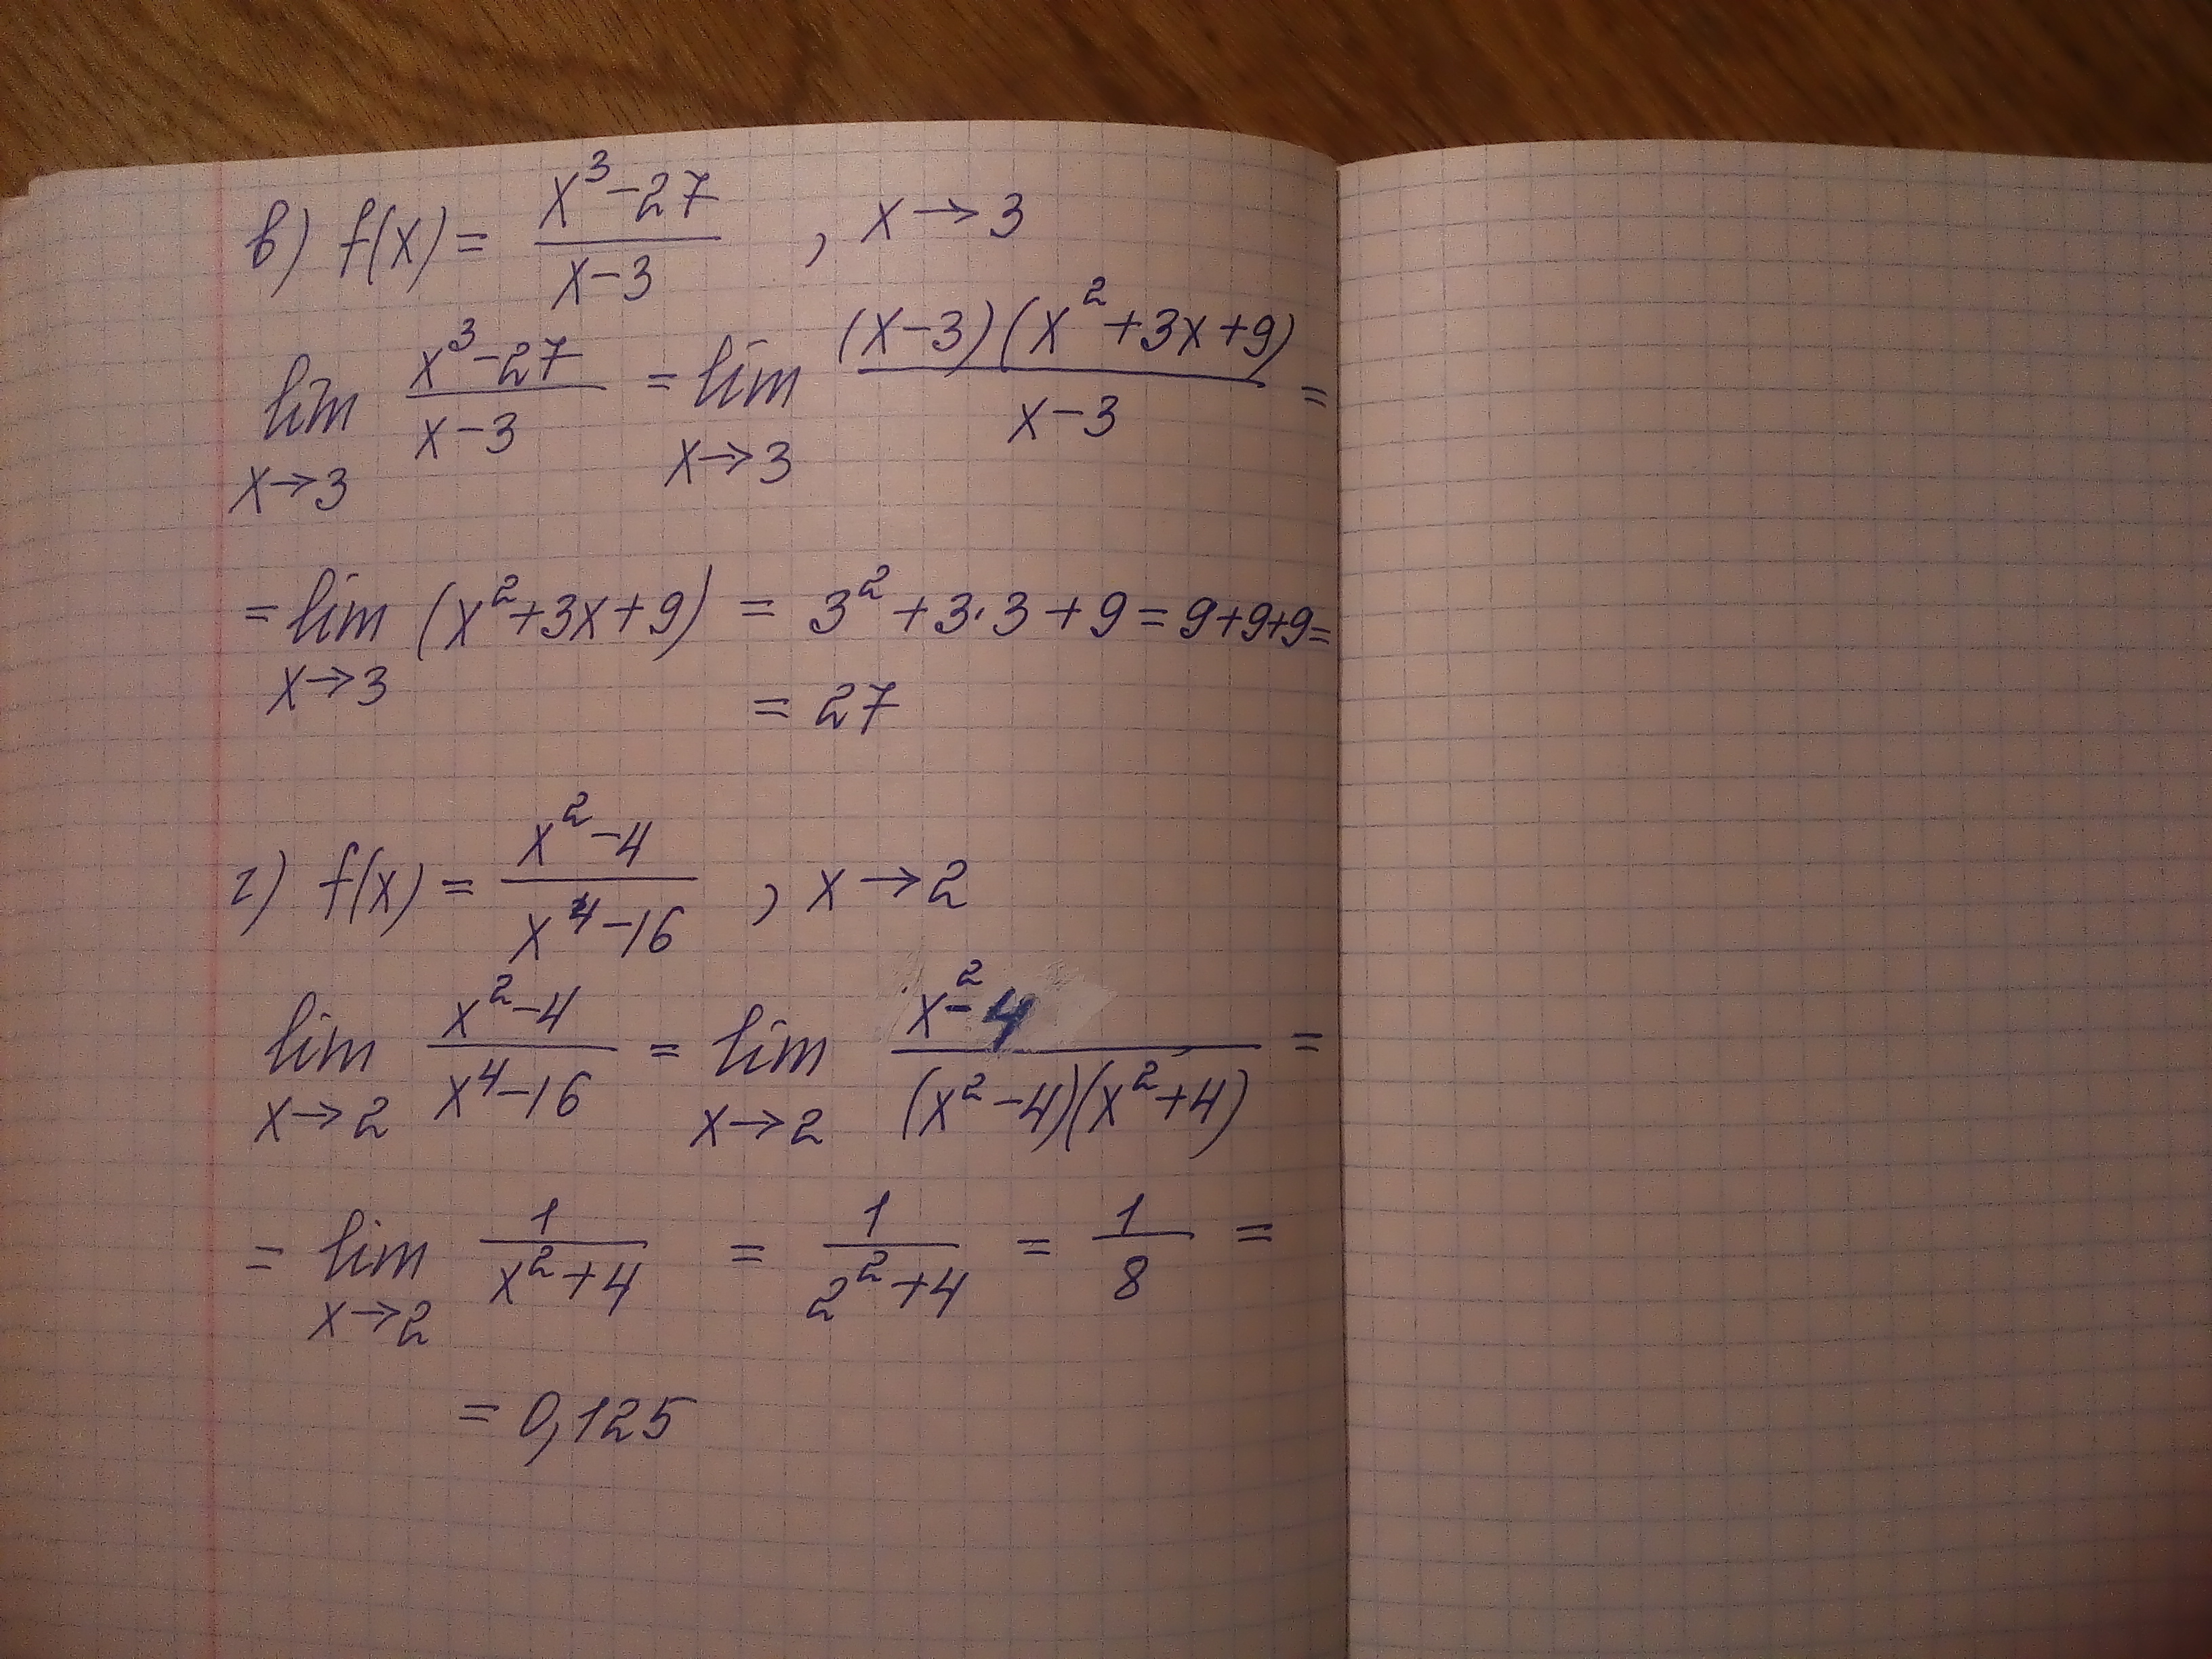 в) f(x) = (x³-27)/(x-3) , x→3
lim x→3 (x³-27)/(x-3) = lim x→3 ((x-3)(x²+3x+9))/(x-3) =
= lim x→3 (x²+3x+9) = 3²+3·3+9 = 9+9+9=
= 27
г) f(x) = (x²-4)/(x⁴-16) , x→2
lim x→2 (x²-4)/(x⁴-16) = lim x→2 (x²-4)/((x²-4)(x²+4)) =
= lim x→2 1/(x²+4) = 1/(2²+4) = 1/8 =
= 0,125